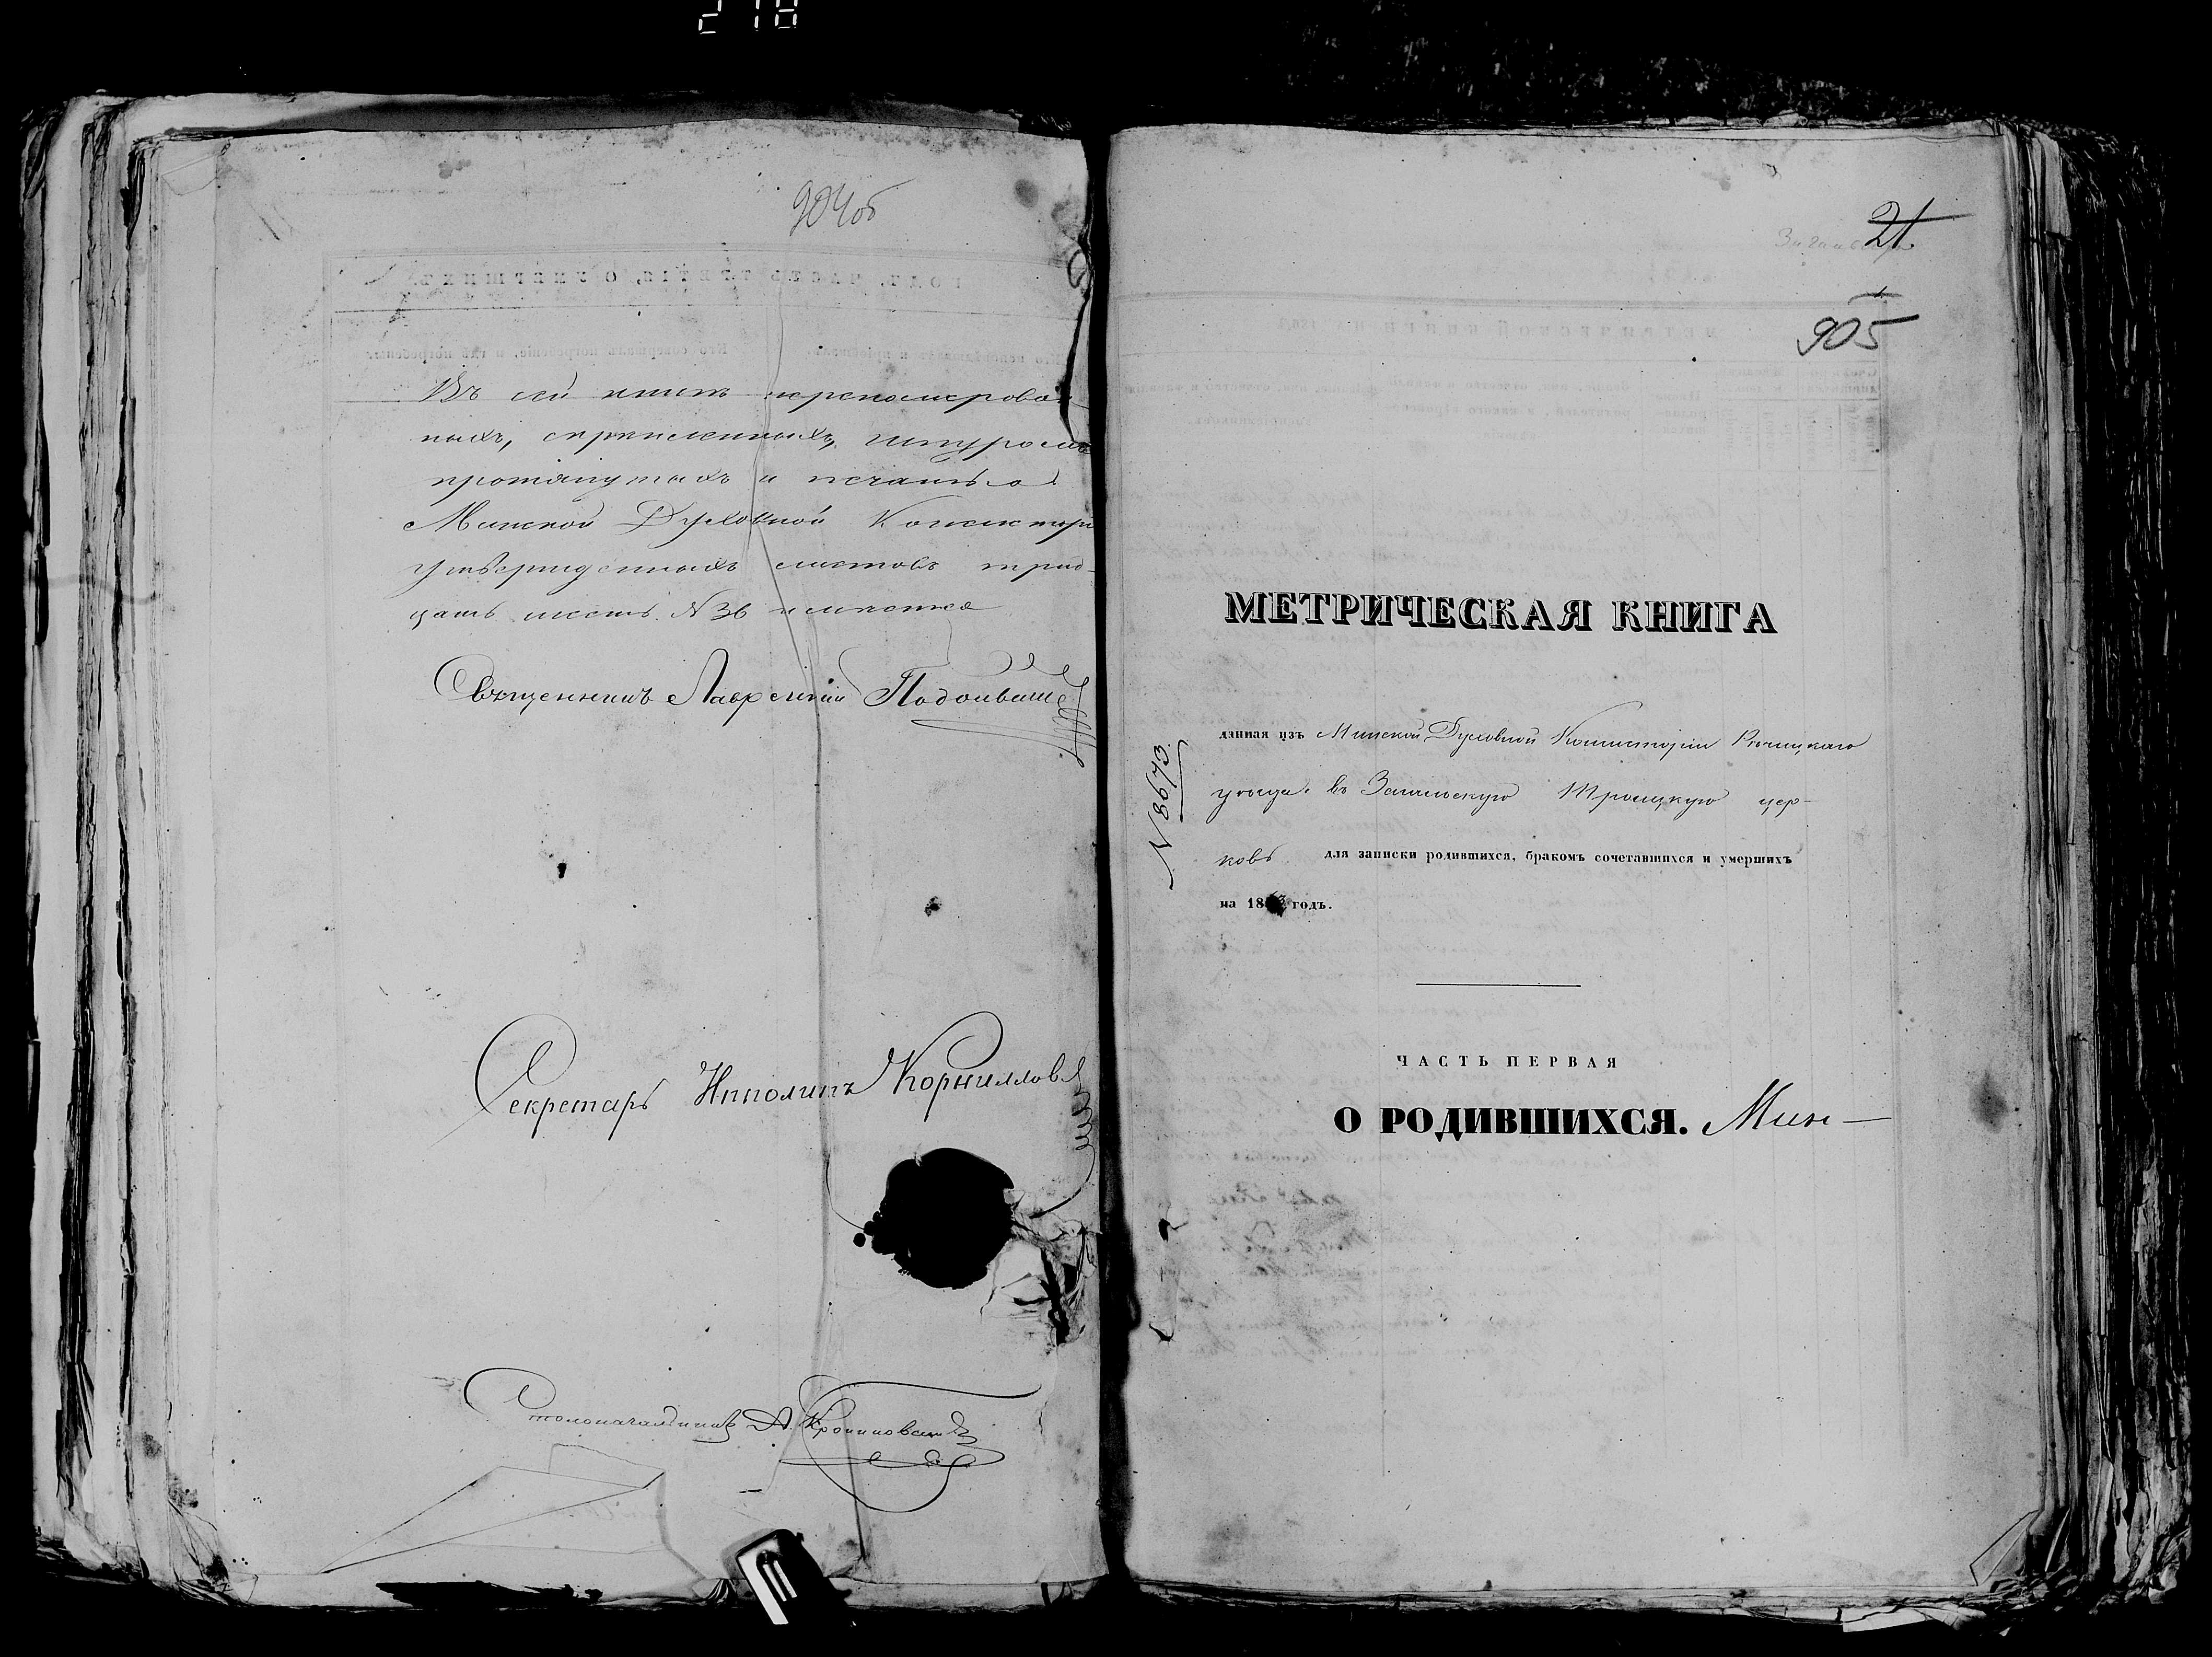 218
904об
Въ сей книгѣ перенумерован-
ныхъ, скрѣпленныхъ, шнуромъ
протянутыхъ и печатью
Минской Духовной Консисторі
утвержденныхъ листовъ трид-
цать шесть. N 36 имѣется
Священникъ Лаврентій
Секретарь Ипполитъ Корниллов
Столоначальникъ А.
21
905
МЕТРИЧЕСКАЯ КНИГА
данная изъ Минской Духовной Консисторіи Рѣчицкаго
уѣзда въ Троицкую цер-
ковь для записки родившихся, бракомъ сочетавшихся и умершихъ
на 18 3 годъ.
N 8673
ЧАСТЬ ПЕРВАЯ
О РОДИВШИХСЯ. Мин-